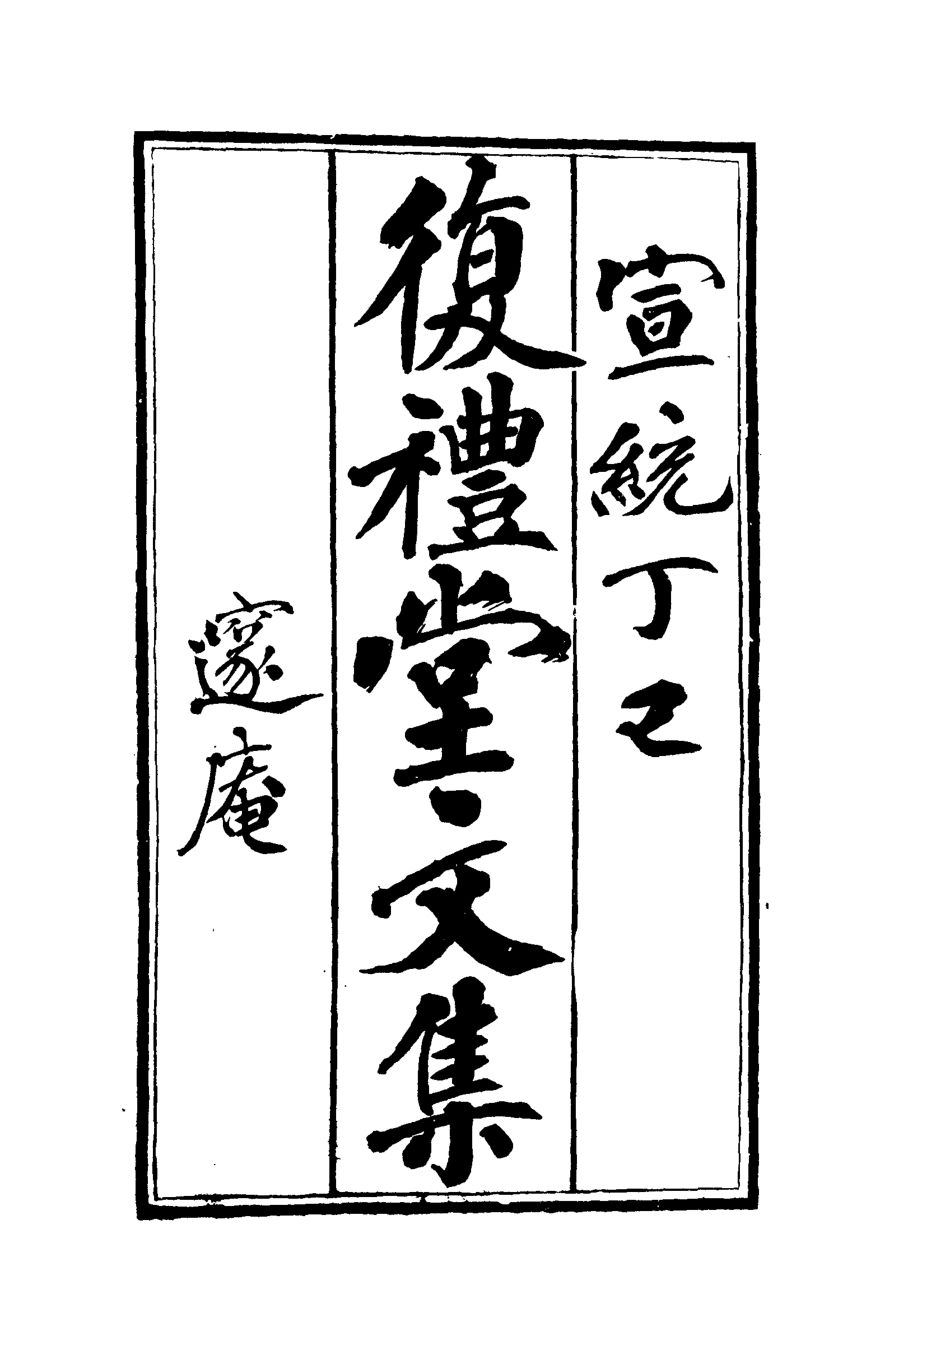 宣統丁巳
復禮堂文集
邃庵